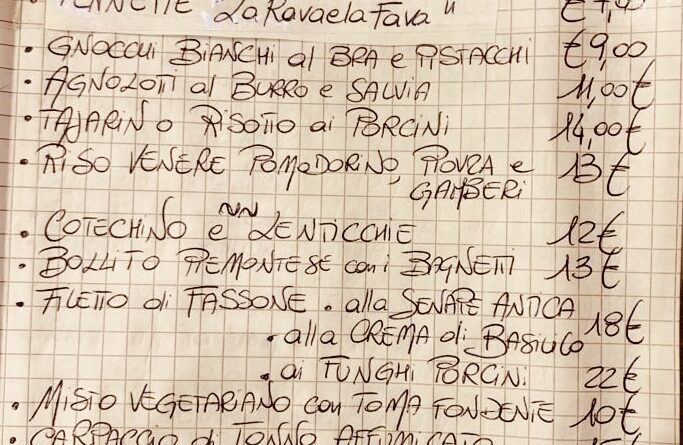 PENNETTE "La Rava e la Fava"
• GNOCCHI BIANCHI al BRA e PISTACCHI €9,00
• AGNOLOTTI al BURRO e SALVIA 11,00€
• TAJARIN O RISOTTO ai PORCINI 14,00€
• RISO VENERE POMODORINO, PIOVRA e 13€
GAMBERI
• COTECHINO e LENTICCHIE 12€
• BOLLITO PIEMONTESE con i BAGNETTI 13€
• FILETTO di FASSONE • alla SENAPE ANTICA
• alla CREMA di BASILICO 18€
• ai FUNGHI PORCINI 22€
• MISTO VEGETARIANO con TOMA FONDENTE 10€
• CARPACCIO di TONNO AFFUMICATO